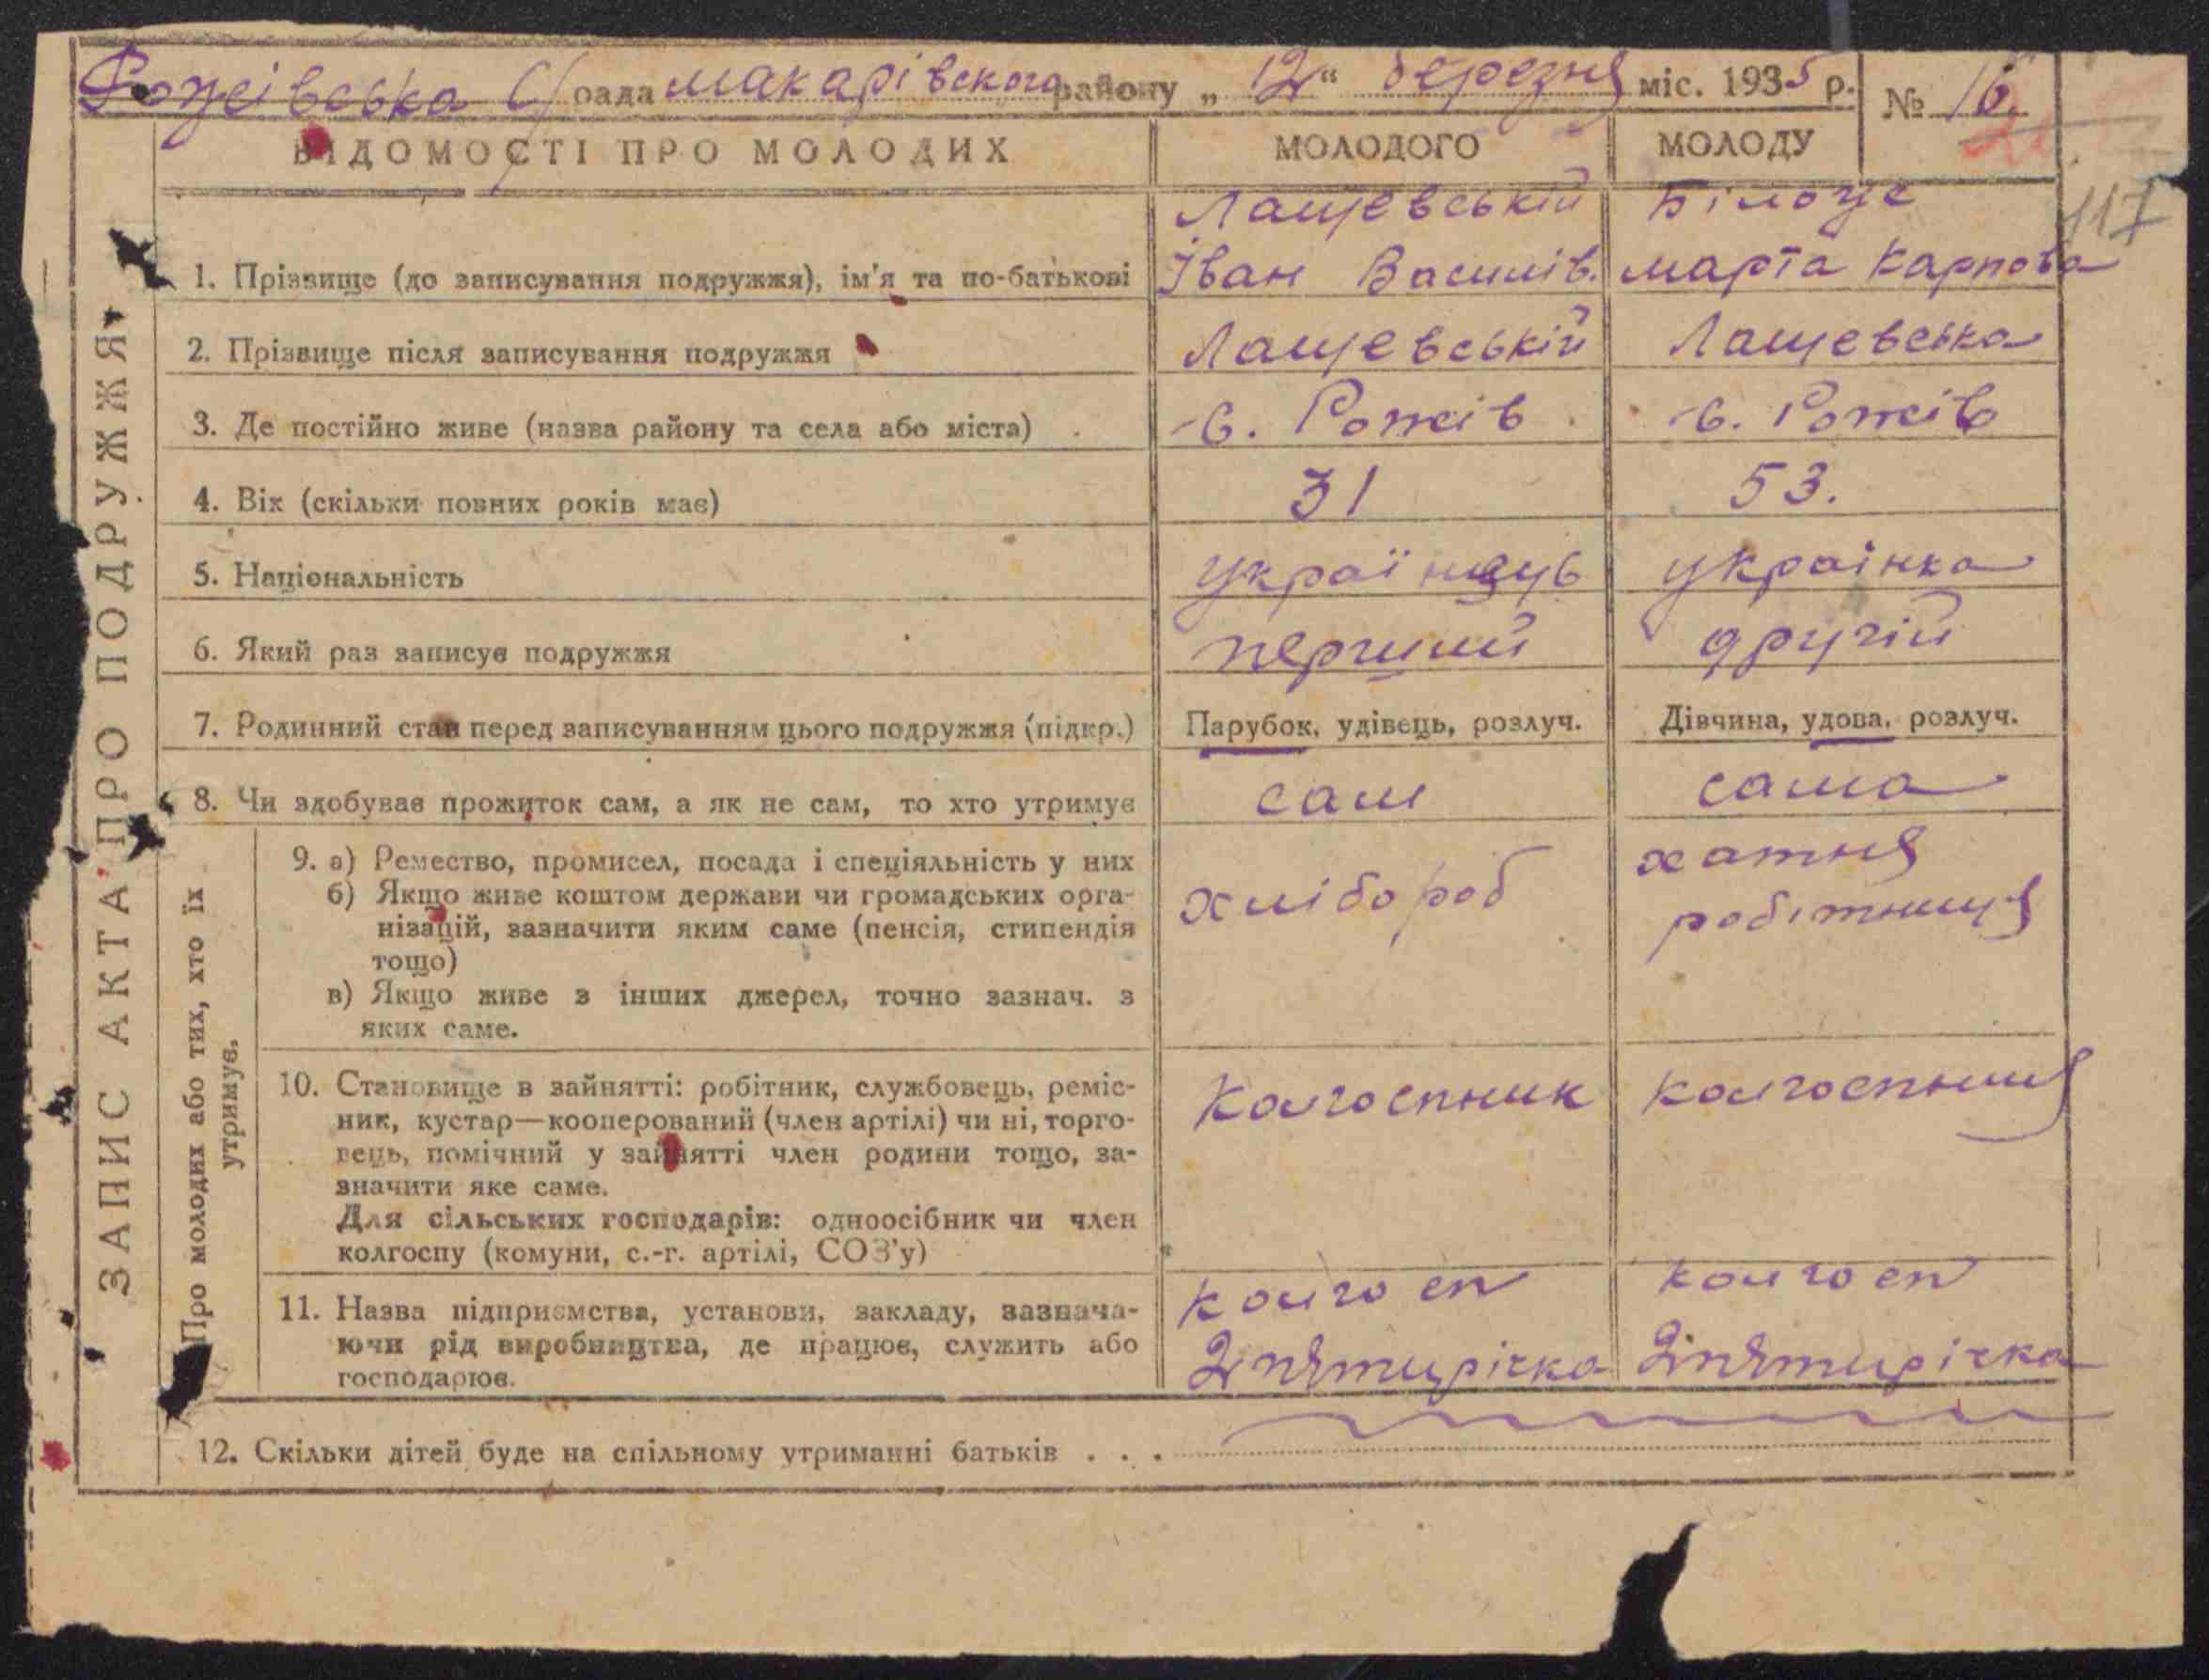 Рожівська С/рада Макарівского району „12“ березня міс. 1935 р. № 16.
117
ЗАПИС АКТА ПРО ПОДРУЖЖЯ
ВІДОМОСТІ ПРО МОЛОДИХ МОЛОДОГО МОЛОДУ
Лащевській Білоус
1. Прізвище (до записування подружжя), ім'я та по-батькові Іван Василів. Марта Карпова
2. Прізвище після записування подружжя Лащевській Лащевська
3. Де постійно живе (назва району та села або міста) с. Рожів с. Рожів
4. Вік (скільки повних років має) 31 53.
5. Національність українець українка
6. Який раз записує подружжя перший другій
7. Родинний стан перед записуванням цього подружжя (підкр.) Парубок, удівець, розлуч. Дівчина, удова, розлуч.
8. Чи здобував прожиток сам, а як не сам, то хто утримує сам сама
Про молодих або тих, хто їх
утримує.
9. а) Ремество, промисел, посада і спеціяльність у них хатня
б) Якщо живе коштом держави чи громадських орга- хлібороб робітниця
нізацій, зазначити яким саме (пенсія, стипендія
тощо)
в) Якщо живе з інших джерел, точно зазнач. з
яких саме.
10. Становище в зайнятті: робітник, службовець, реміс- колгоспник колгоспниця
ник, кустар—кооперований (член артілі) чи ні, торго-
вець, помічний у зайнятті член родини тощо, за-
значити яке саме.
Для сільських господарів: одноосібник чи член
колгоспу (комуни, с.-г. артілі, СОЗ'у)
11. Назва підприємства, установи, закладу, зазнача- колгосп колгосп
ючи рід виробництва, де працює, служить або 2 пятирічка 2 пятирічка
господарює.
12. Скільки дітей буде на спільному утриманні батьків . . .